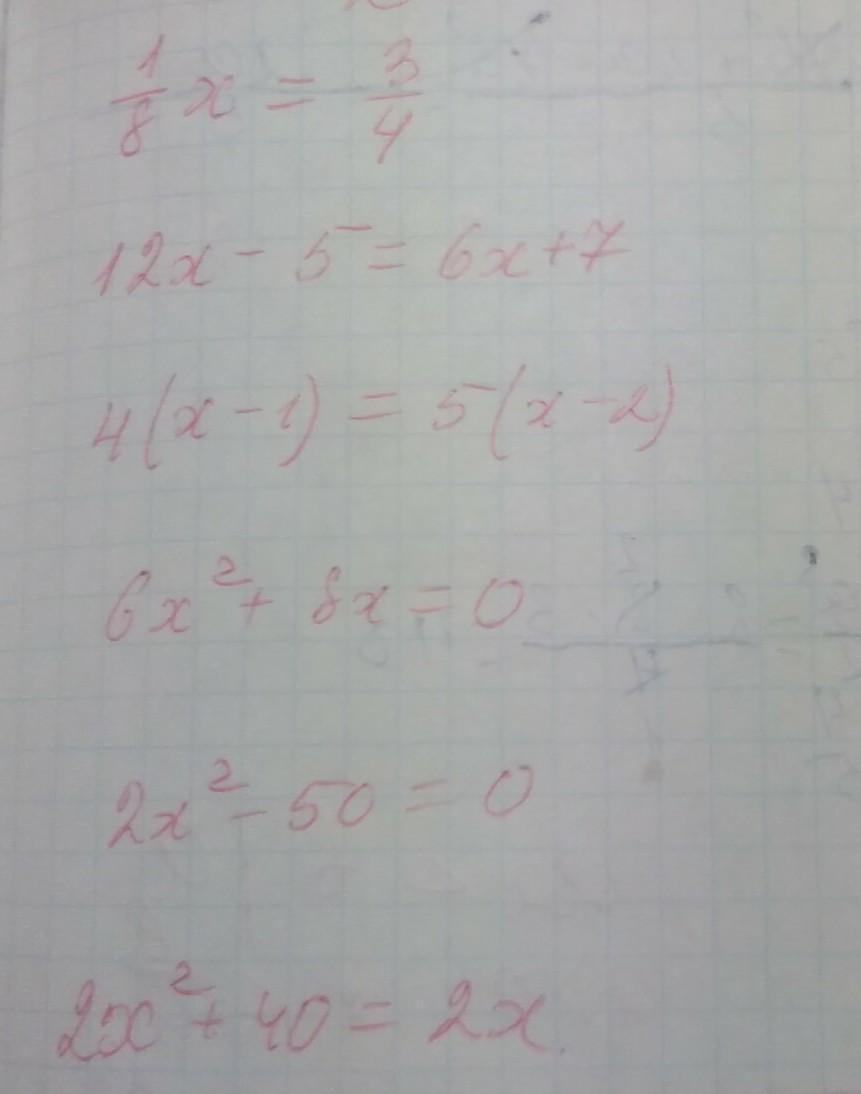 1/8 x = 3/4
12x - 5 = 6x + 7
4(x - 1) = 5(x - 2)
6x² + 8x = 0
2x² - 50 = 0
2x² + 40 = 2x.